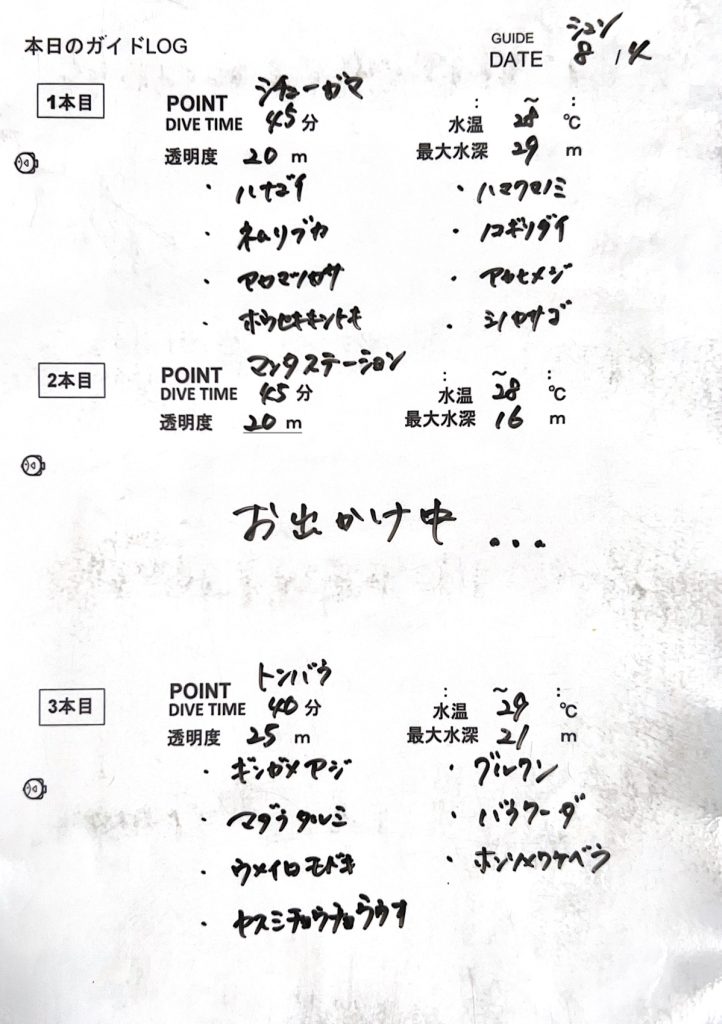 本日のガイドLOG
GUIDE シュン
DATE 8 / 4
1本目
POINT シチューガマ
: ~ :
DIVE TIME 45 分 水温 28 ℃
透明度 20 m 最大水深 29 m
・ハナゴイ ・ハマクマノミ
・ネムリブカ ・ノコギリダイ
・アカマツカサ ・アカヒメジ
・ホウセキキントキ ・シノカサゴ
2本目
POINT マンタステーション
: ~ :
DIVE TIME 45 分 水温 28 ℃
透明度 20 m 最大水深 16 m
お出かけ中 ...
3本目
POINT トンバラ
: ~ :
DIVE TIME 40 分 水温 29 ℃
透明度 25 m 最大水深 21 m
・ギンガメアジ ・グルクン
・マダラタルミ ・バラクーダ
・ウメイロモドキ ・ホンソメワケベラ
・ヤスミチョウチョウウオ